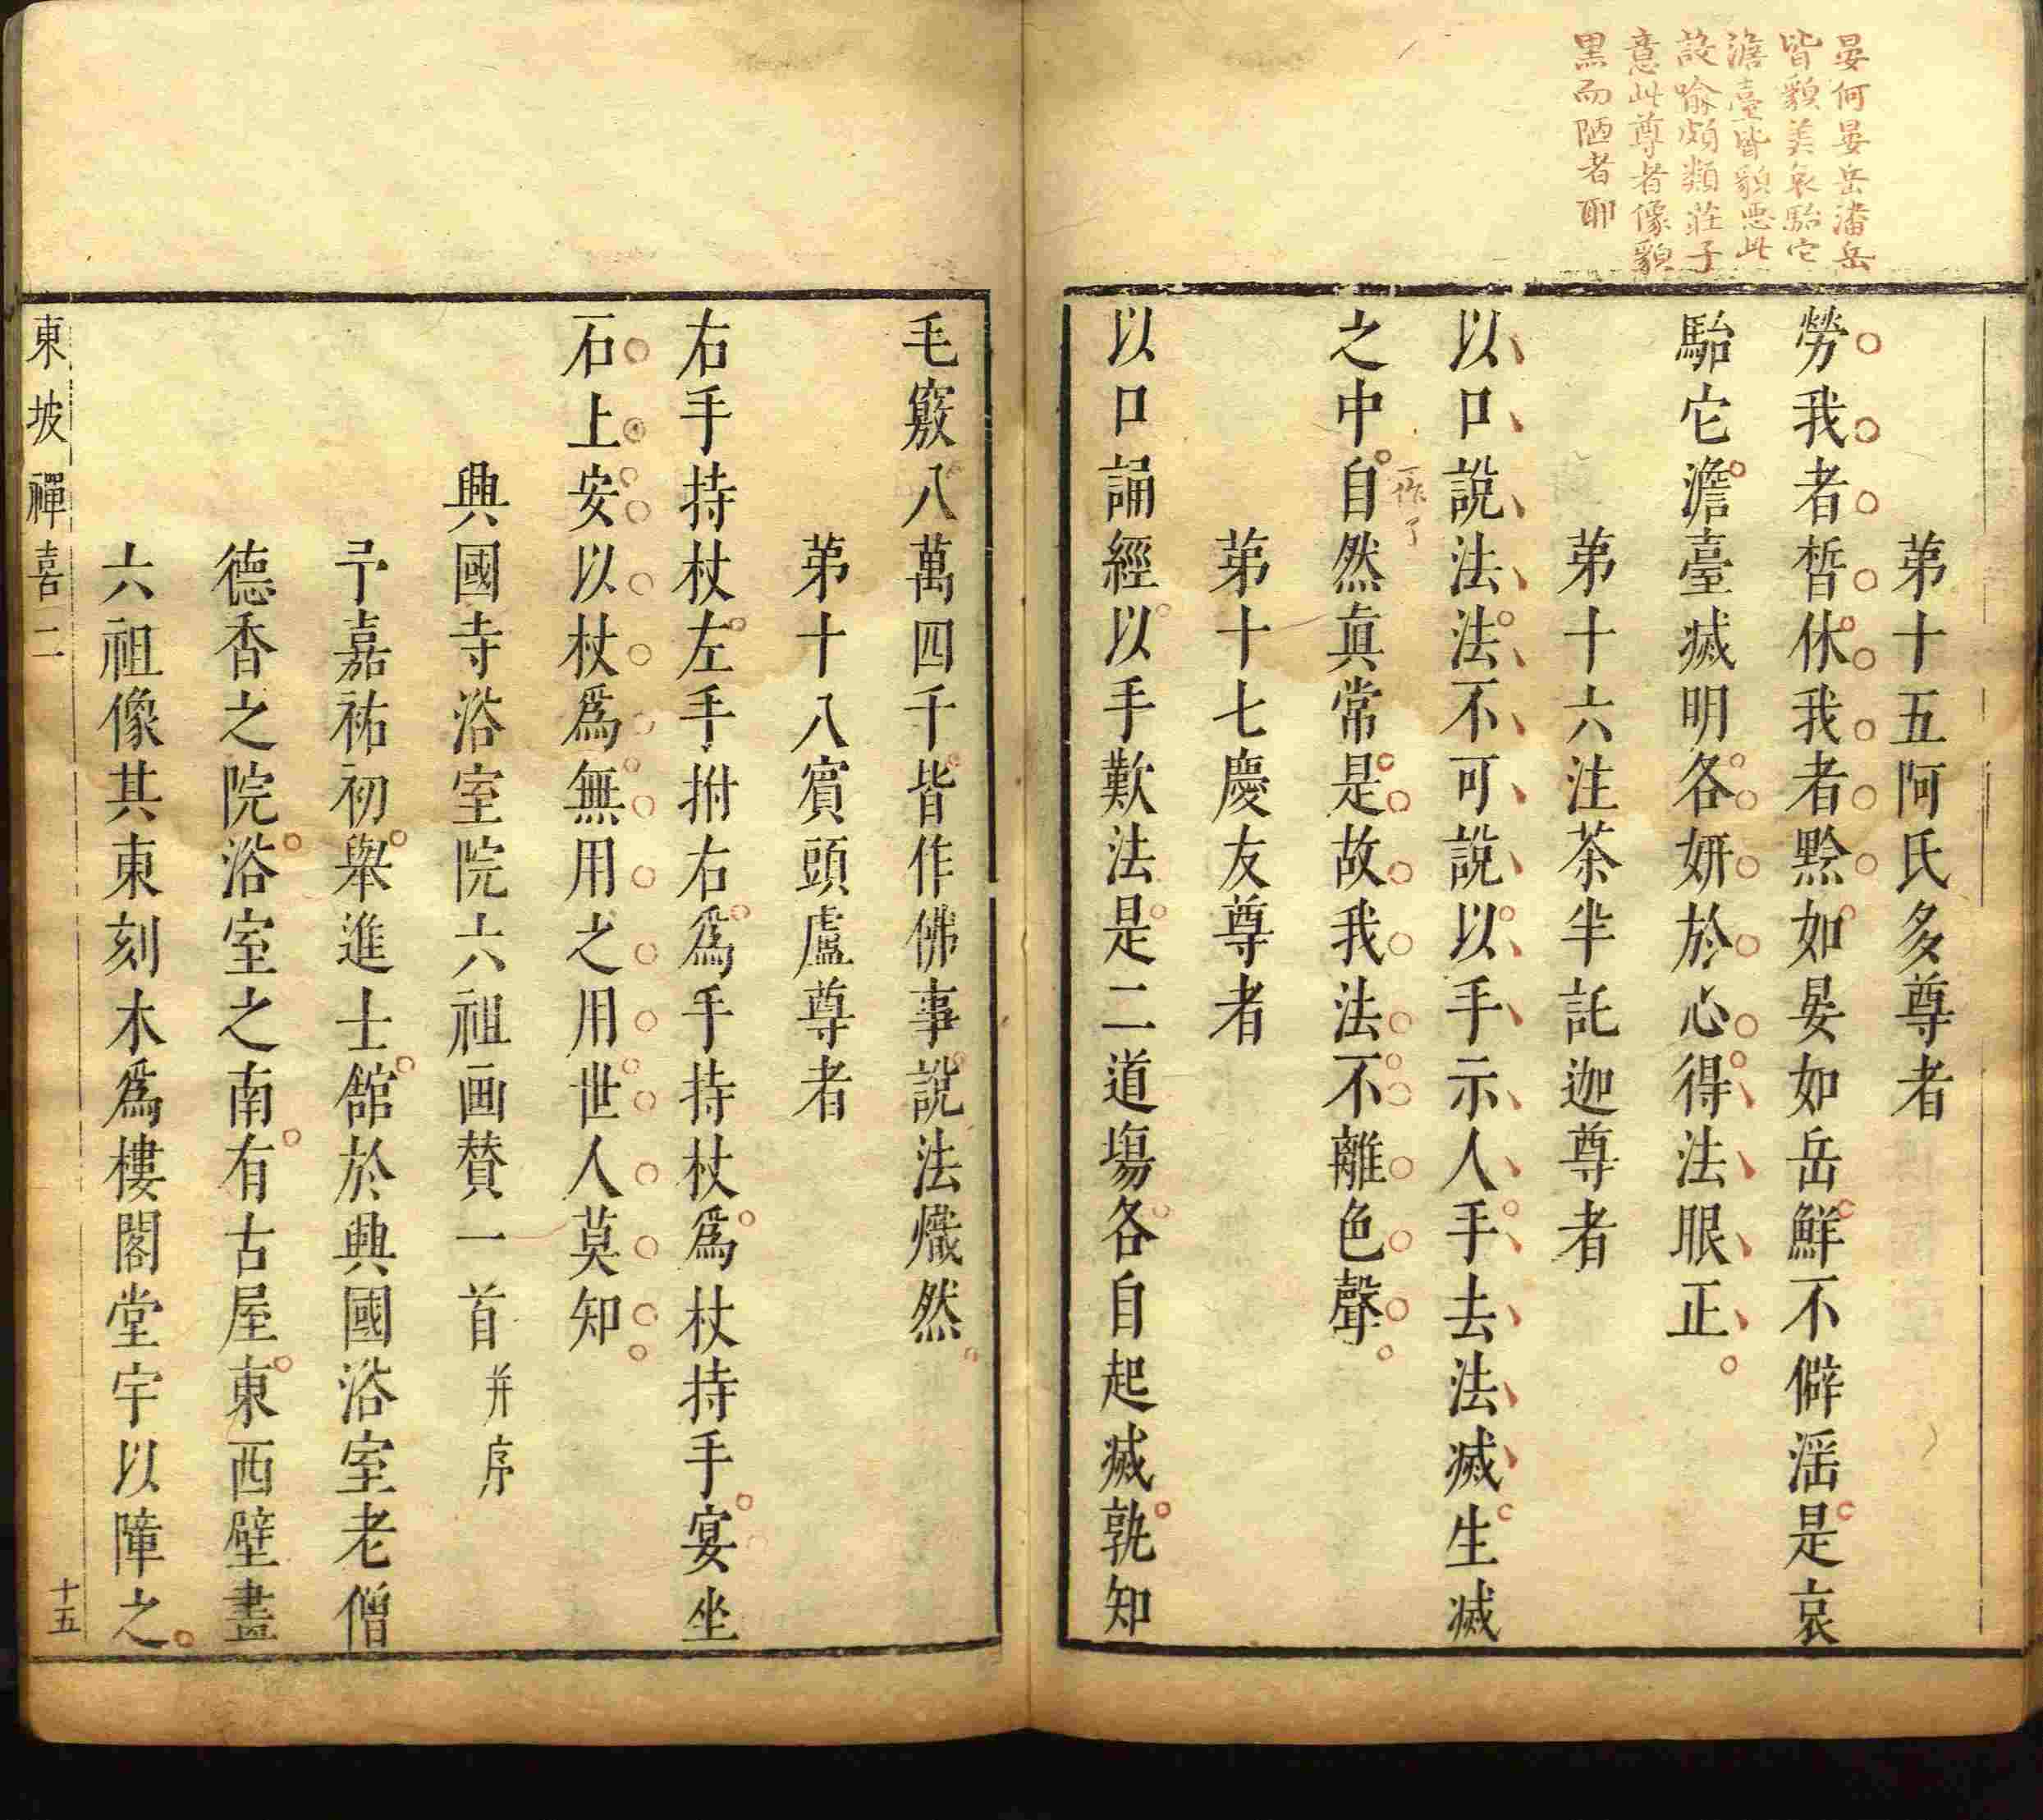 晏何晏岳潘岳
皆貌美哀駘它
澹臺皆貌惡此
設喻頗類莊子
意此尊者像貌
黑而陋者耶
第十五阿氏多尊者
勞我者皙休我者黔如晏如岳鮮不僻淫是哀
駘它澹臺滅明各妍於心得法眼正
第十六注茶半託迦尊者
以口說法法不可說以手示人手去法滅生滅
之中自然真常是故我法不離色聲
一作了
第十七慶友尊者
以口誦經以手歎法是二道場各自起滅孰知
毛竅八萬四千皆作佛事說法熾然
第十八賓頭盧尊者
右手持杖左手拊右為手持杖為杖持手宴坐
石上安以杖為無用之用世人莫知
興國寺浴室院六祖画贊一首并序
予嘉祐初舉進士館於興國浴室老僧
德香之院浴室之南有古屋東西壁畫
六祖像其東刻木為樓閣堂宇以障之
東坡禪喜二
十五